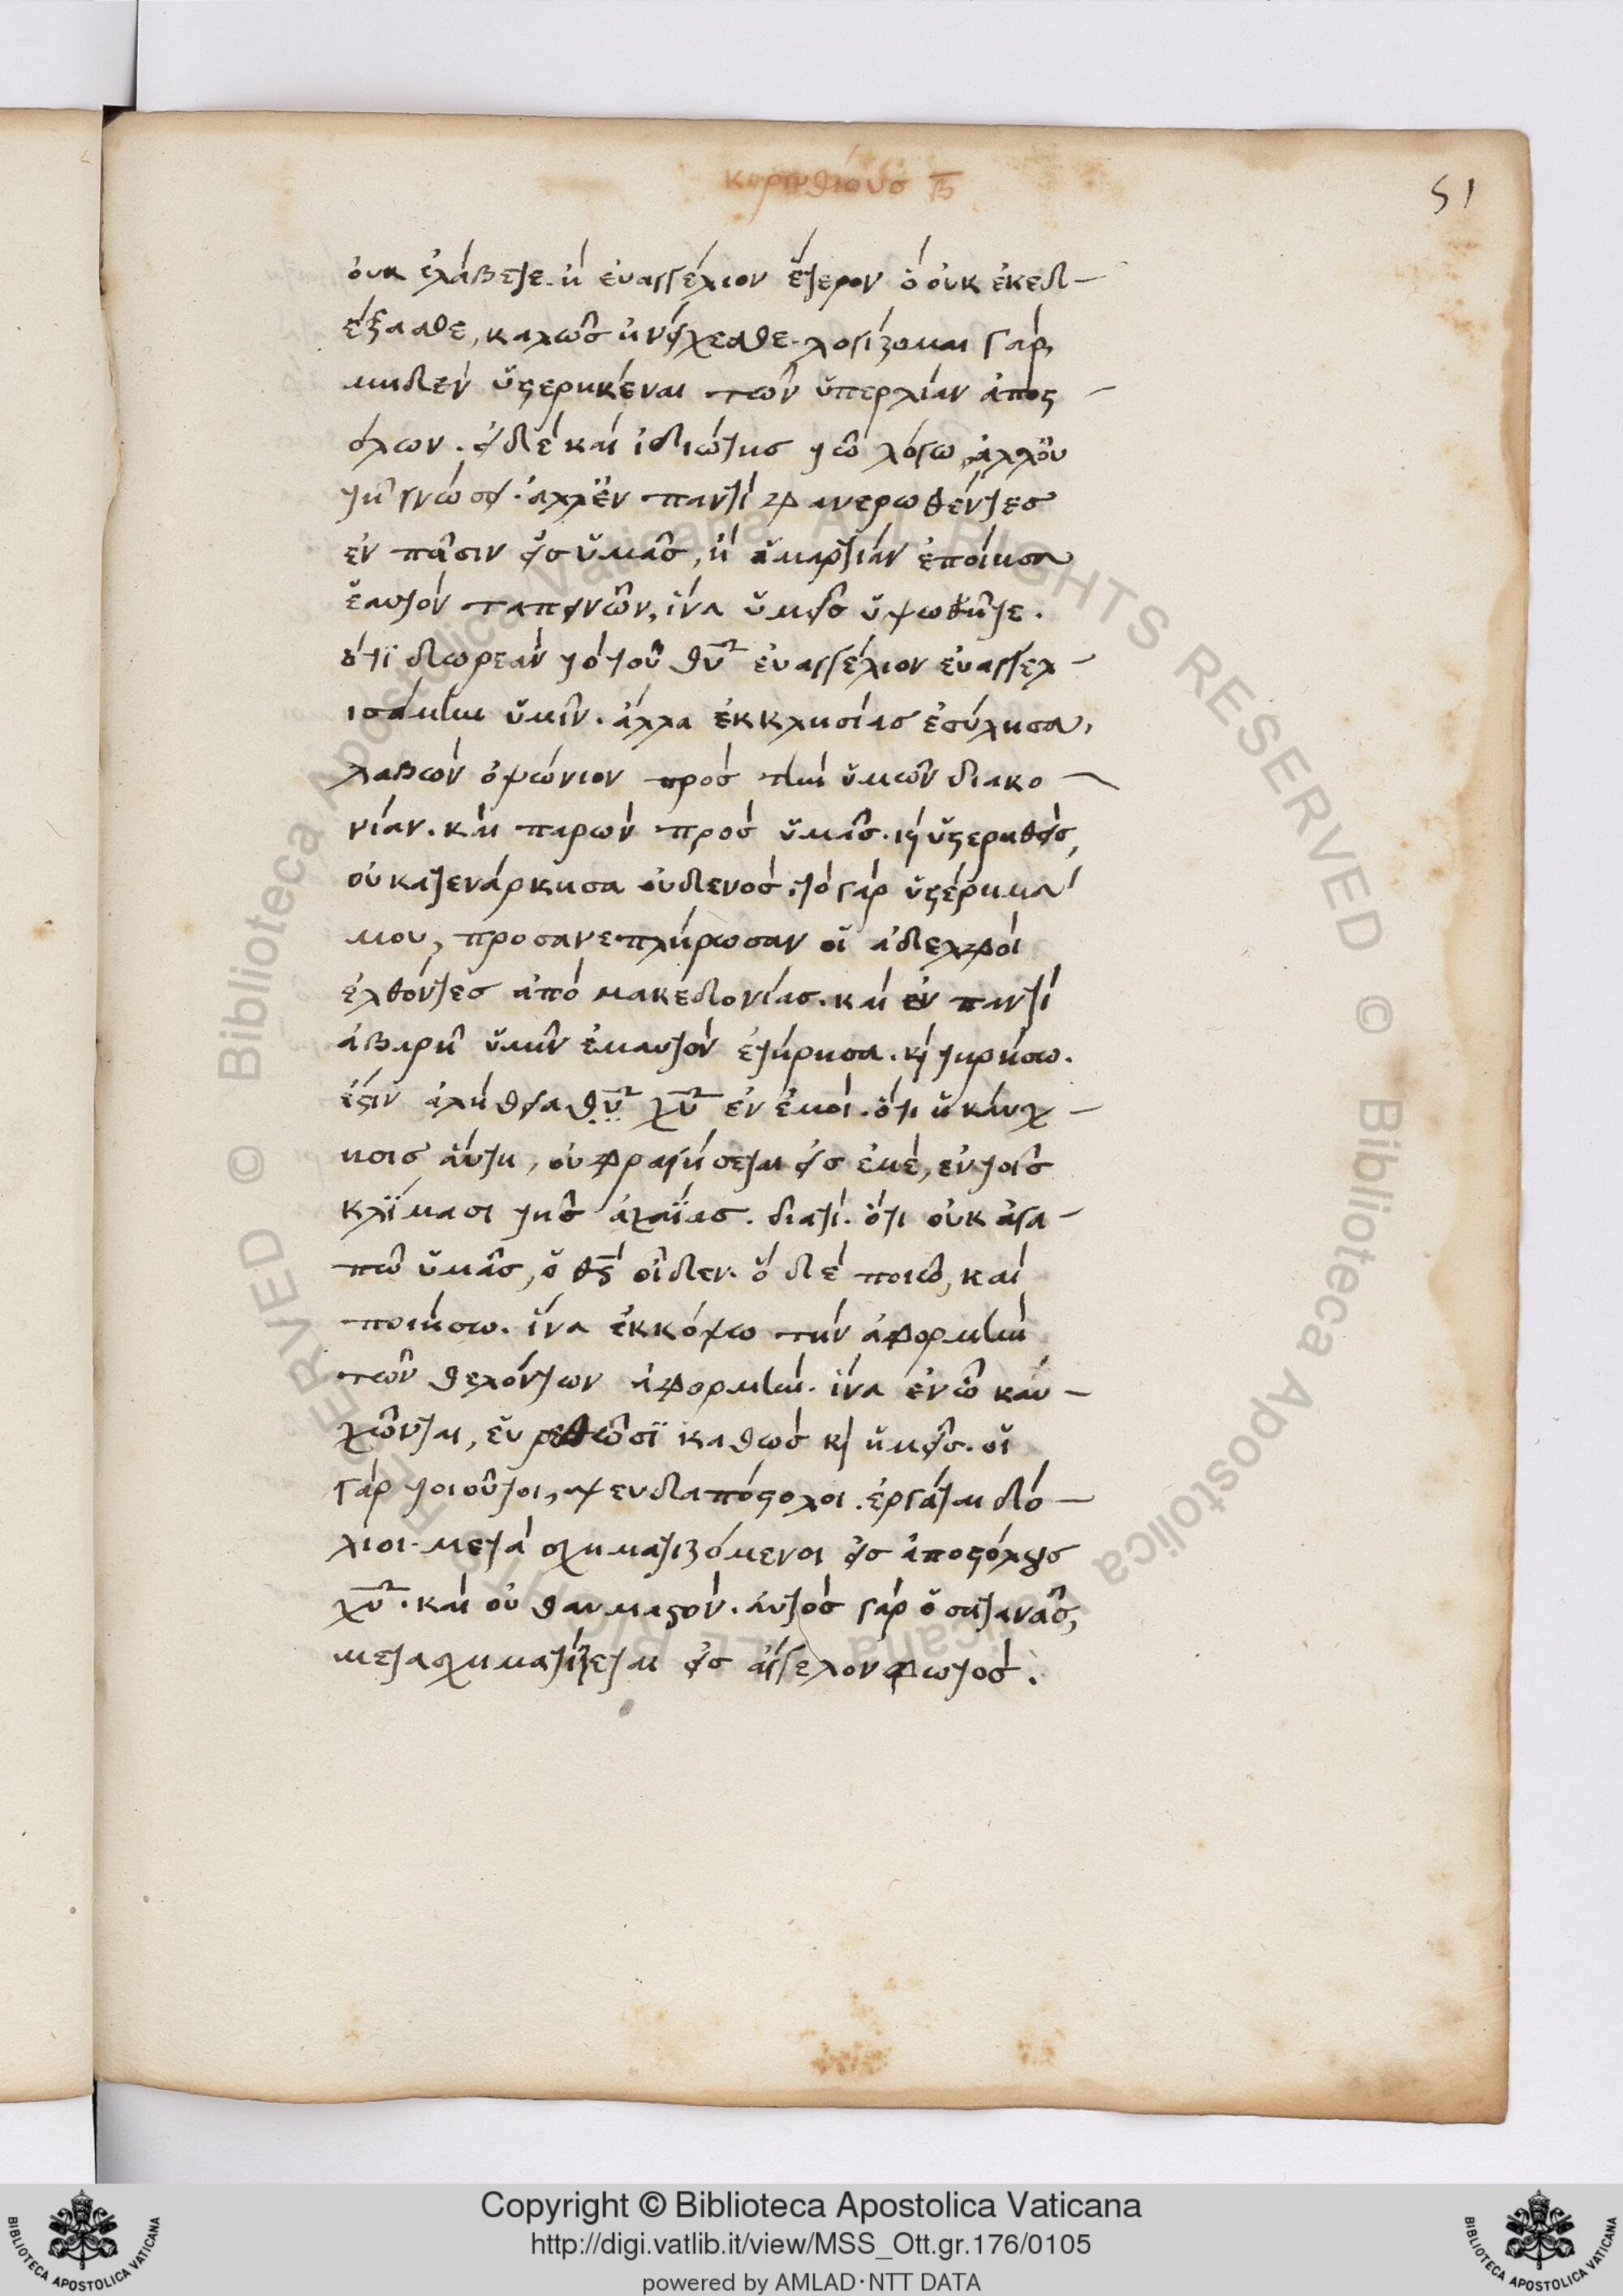 κορινθίους β
51
οὐκ ἐλάβετε. ἢ εὐαγγέλιον ἕτερον ὃ οὐκ ἐκεδ-
έξασθε, καλῶς ἠνείχεσθε. λογίζομαι γὰρ
μηδὲν ὑστερηκέναι τῶν ὑπερλίαν ἀποστ-
όλων. εἰ δὲ καὶ ἰδιώτης τῶ λόγω, ἀλλ' οὐ
τῆ γνώσει. ἀλλ' ἐν παντὶ φανερωθέντες
ἐν πᾶσιν εἰς ὑμᾶς, ἢ ἁμαρτίαν ἐποίησα
ἑαυτὸν ταπεινῶν, ἵνα ὑμεῖς ὑψωθῆτε.
ὅτϊ δωρεὰν τὸ τοῦ θυ εὐαγγέλιον εὐαγγελ-
ισάμην ὑμῖν. ἄλλα ἐκκλησίας ἐσύλησα,
λαβὼν ὀψώνιον πρὸς τὴν ὑμῶν διακο-
νίαν. καὶ παρὼν πρὸς ὑμᾶς. κ ὑστερηθεὶς,
οὐ κατενάρκησα οὐδενὸς. τὸ γὰρ ὑστέρημά
μου, προσανεπλήρωσαν οἱ ἀδελφοὶ
ἐλθόντες ἀπὸ μακεδονίας. καὶ ἐν παντὶ
ἀβαρῆ ὑμῖν ἐμαυτὸν ἐτήρησα. κ τηρήσω.
ἔστιν ἀλήθεια θυ χυ ἐν ἐμοὶ. ὅτι ἡ καυχ-
ησις αὕτη, οὐ φραγήσεται εἰς ἐμὲ, ἐν τοῖς
κλίμασι τῆς ἀχαΐας. διατί. ὅτι οὐκ ἀγα-
πῶ ὑμᾶς, ὁ θς οἶδεν. ὃ δὲ ποιῶ, καὶ
ποιήσω. ἵνα ἐκκόψω τὴν ἀφορμὴν
τῶν θελόντων ἀφορμὴν. ἵνα ἐν ὧ καυ-
χῶνται, εὑρεθῶσϊ καθὼς κ ἡμεῖς. οἱ
γὰρ τοιοῦτοι, ψευδαπόστολοι. ἐργάται δό-
λιοι. μετασχηματιζόμενοι εἰς ἀποστόλους
χυ. καὶ οὐ θαυμαστὸν. αὐτὸς γὰρ ὁ σατανᾶς,
μετασχηματίζεται εἰς ἄγγελον φωτὸς.
Copyright © Biblioteca Apostolica Vaticana
http://digi.vatlib.it/view/MSS_Ott.gr.176/0105
powered by AMLAD·NTT DATA